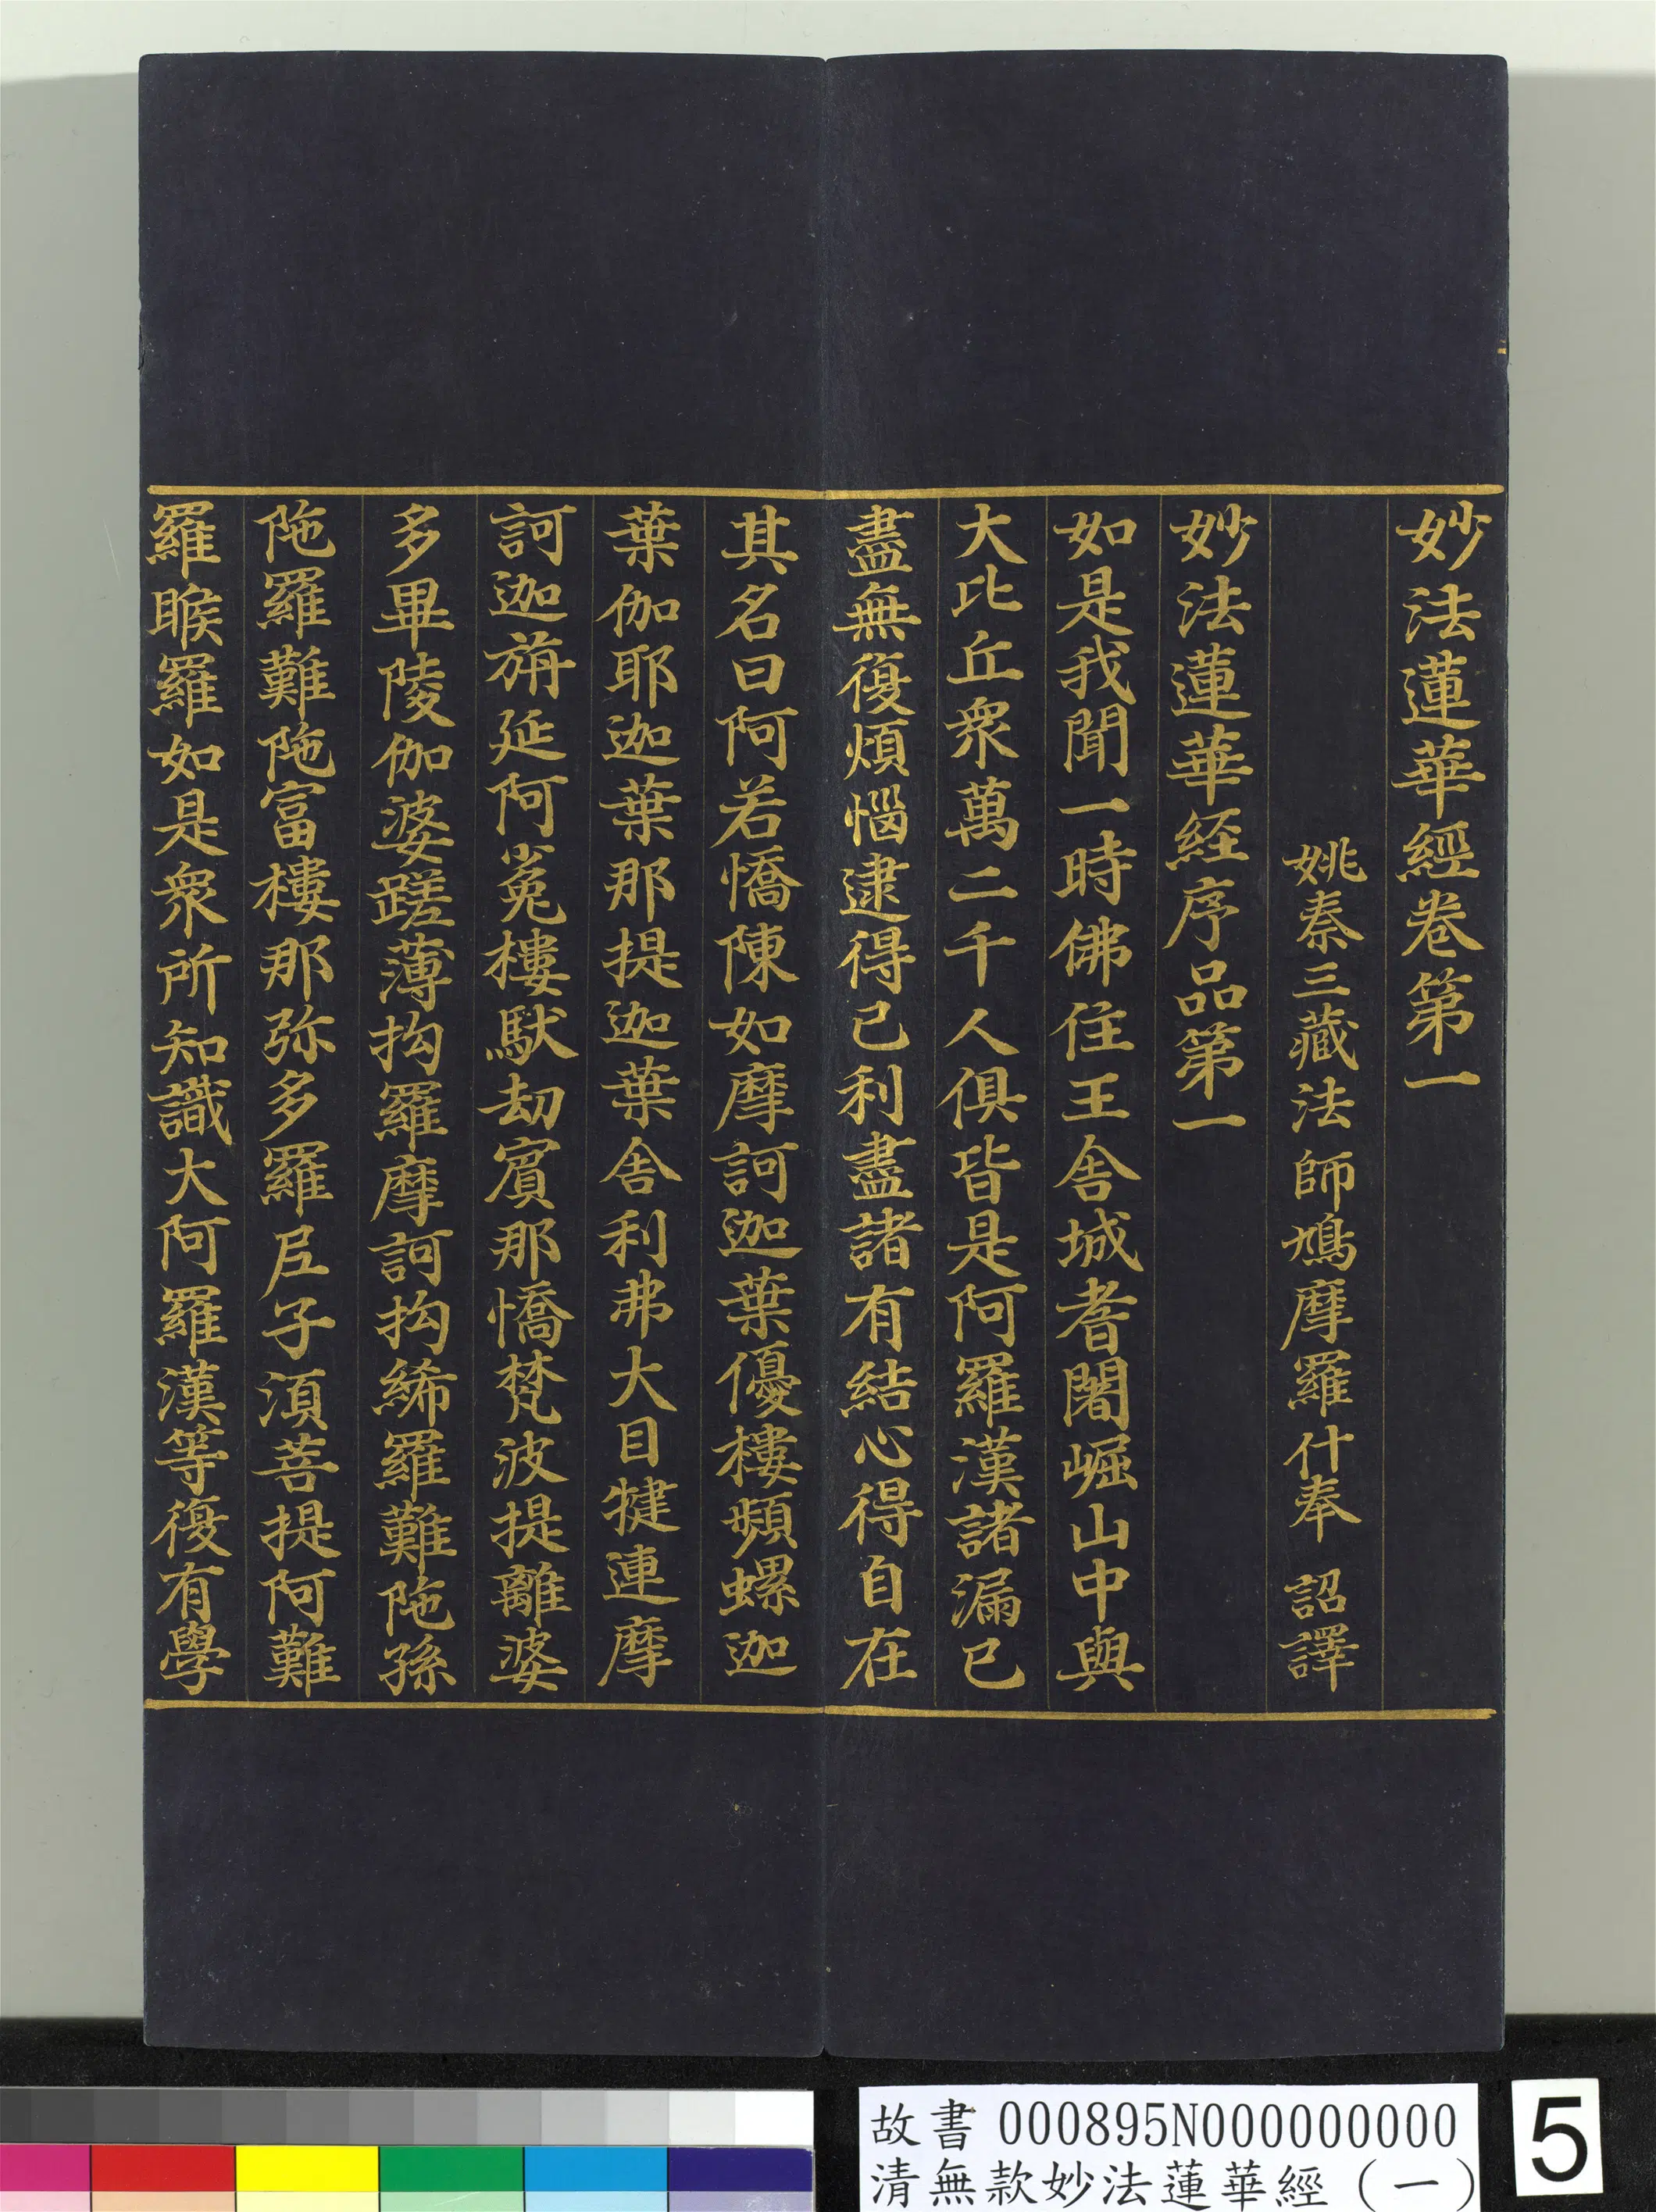 妙法蓮華經卷第一
姚秦三藏法師鳩摩羅什奉 詔譯
妙法蓮華経序品第一
如是我聞一時佛住王舍城耆闍崛山中與
大比丘衆萬二千人俱皆是阿羅漢諸漏已
盡無復煩惱逮得己利盡諸有結心得自在
其名曰阿若憍陳如摩訶迦葉優樓頻螺迦
葉伽耶迦葉那提迦葉舍利弗大目犍連摩
訶迦旃延阿㝹樓馱劫賓那憍梵波提離婆
多畢陵伽婆蹉薄拘羅摩訶拘絺羅難陁孫
陁羅難陁富樓那弥多羅尼子湏菩提阿難
羅睺羅如是衆所知識大阿羅漢等復有學
故書 000895N000000000
清無款妙法蓮華經（一）
5